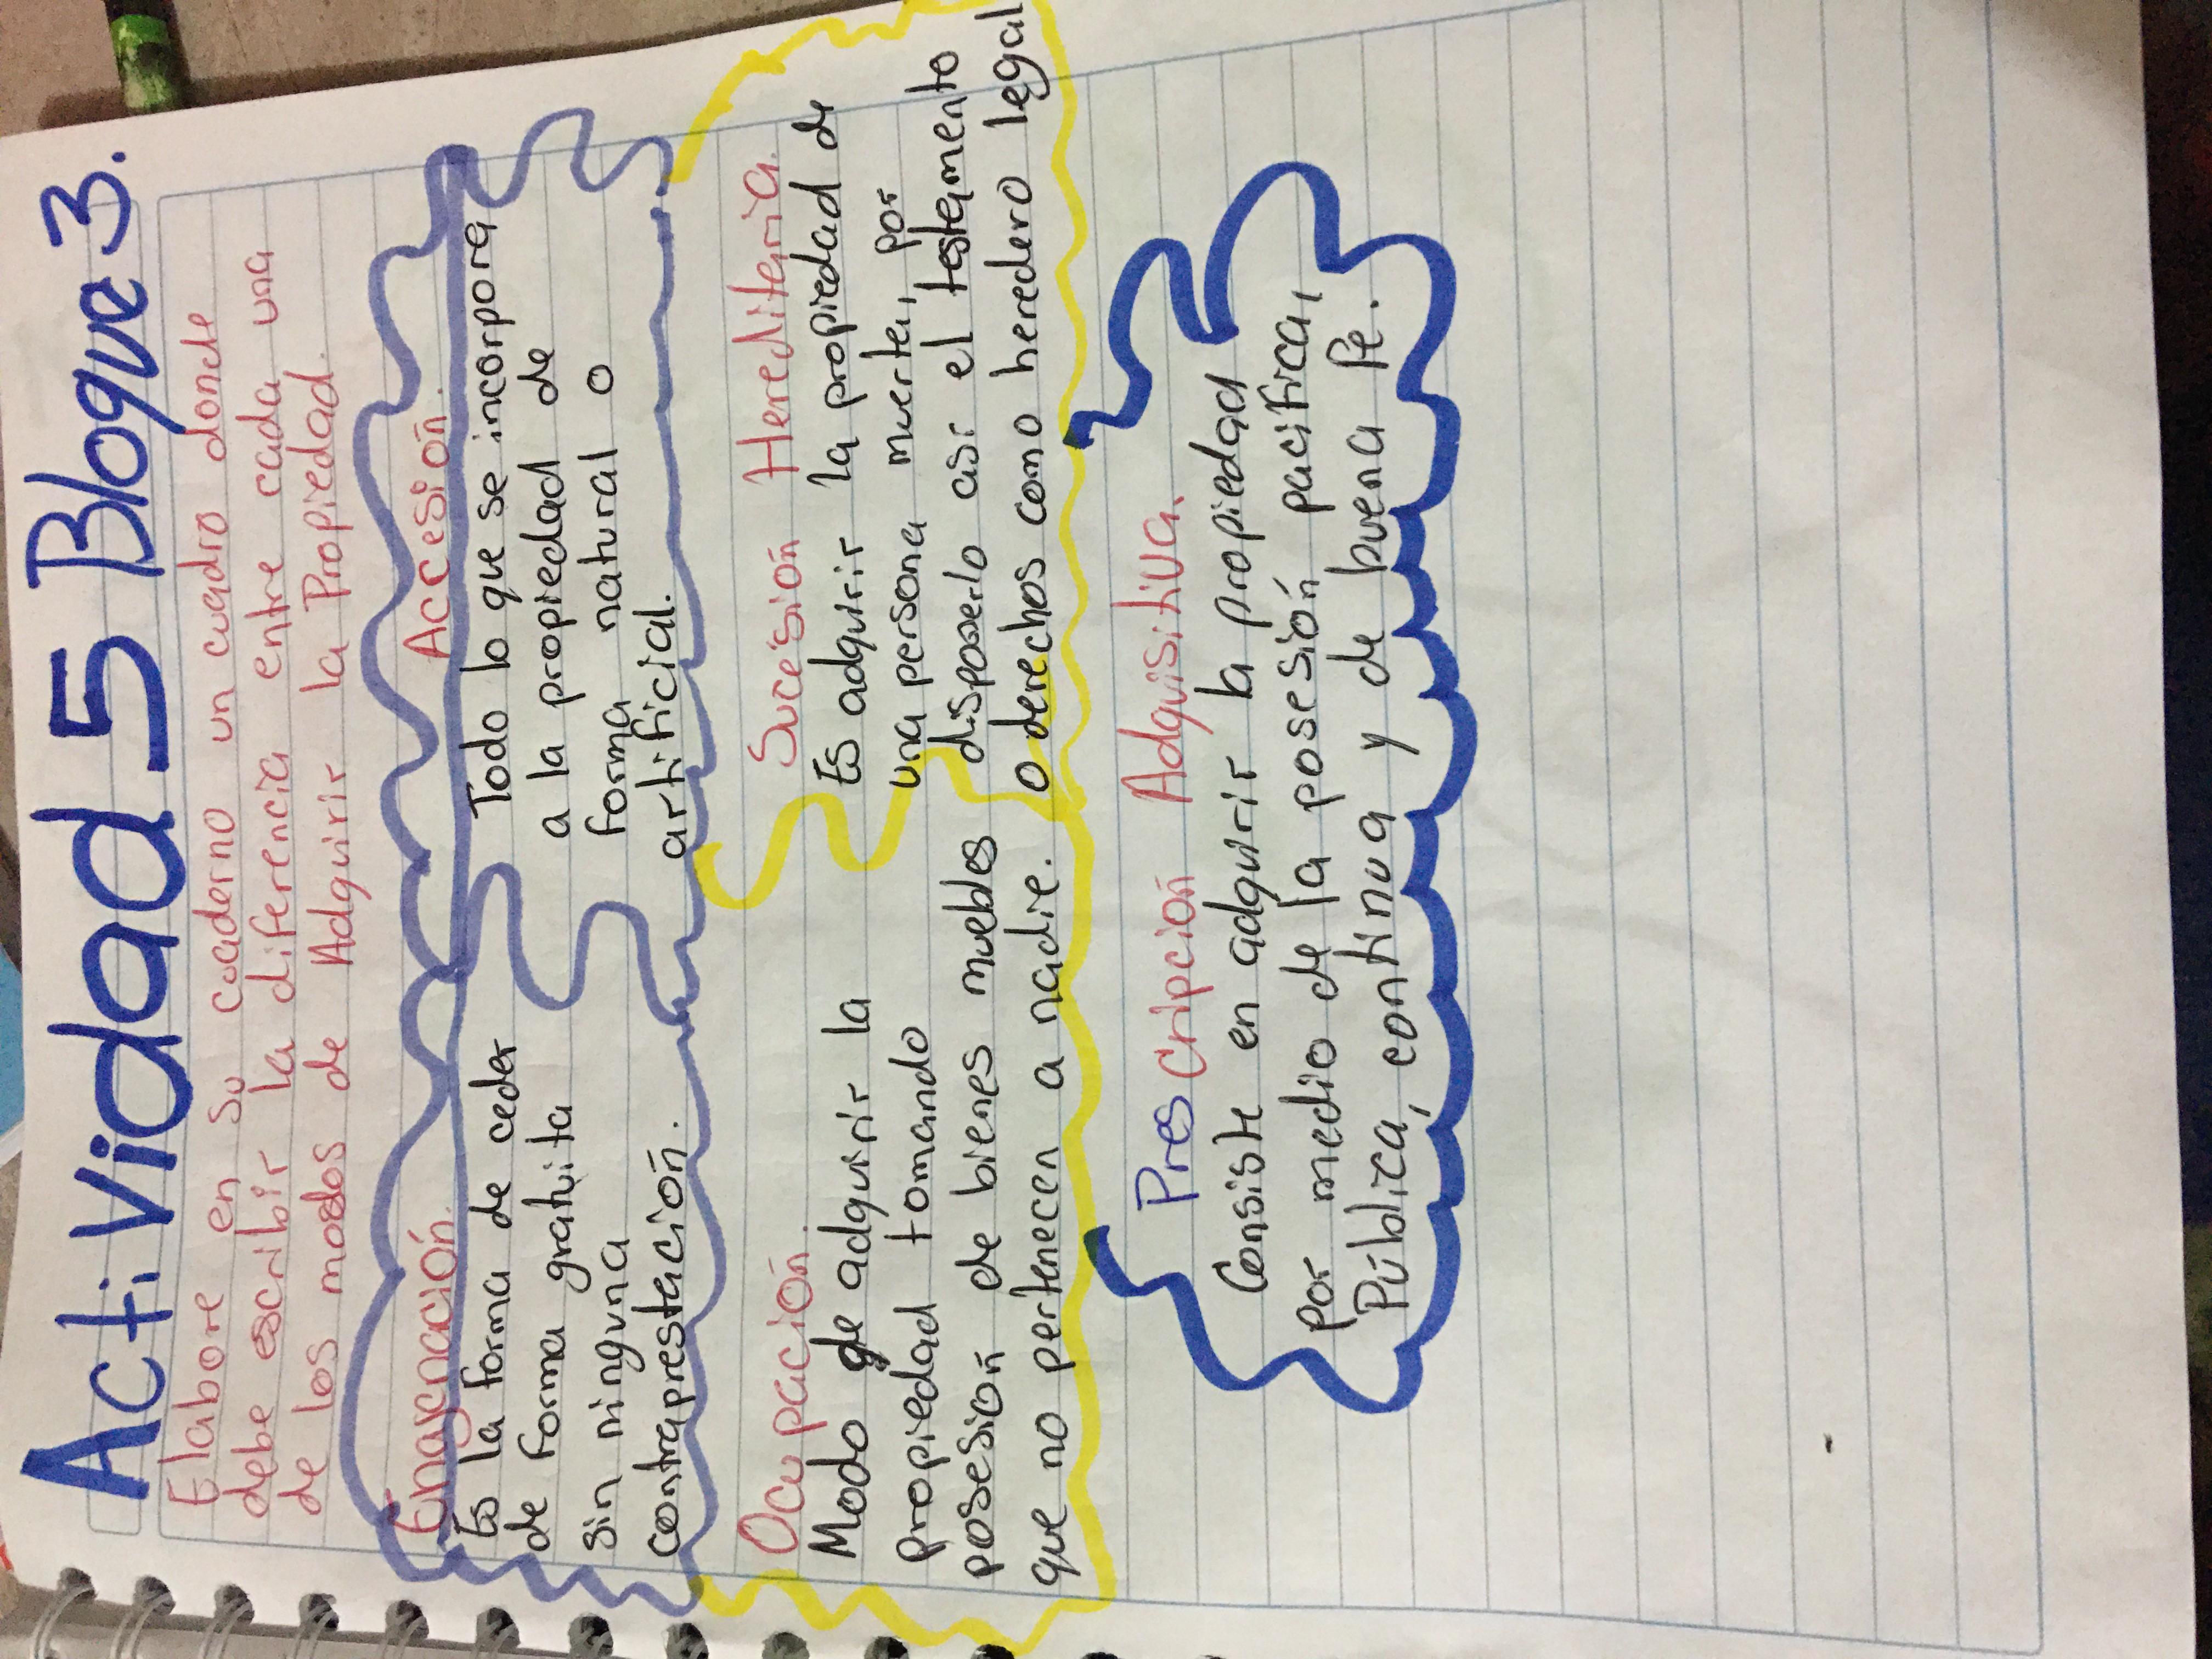 Actividad 5 Bloque 3.
Elabore en su cuaderno un cuadro donde
debe escribir la diferencia entre cada una
de los modos de Adquirir la Propiedad.
Enajenación.
Es la forma de ceder
de forma gratuita
sin ninguna
contraprestación.
Accesión.
Todo lo que se incorpora
a la propiedad de
forma natural o
artificial.
Ocupación.
Modo de adquirir la
propiedad tomando
posesión de bienes muebles
que no pertenecen a nadie.
Sucesión Hereditaria.
Es adquirir la propiedad de
una persona muerta, por
disposerlo asi el testamento
o derechos como heredero legal
Prescripción Adquisitiva.
Consiste en adquirir la propiedad
por medio de la posesión pacifica,
Pública, continua y de buena fe.